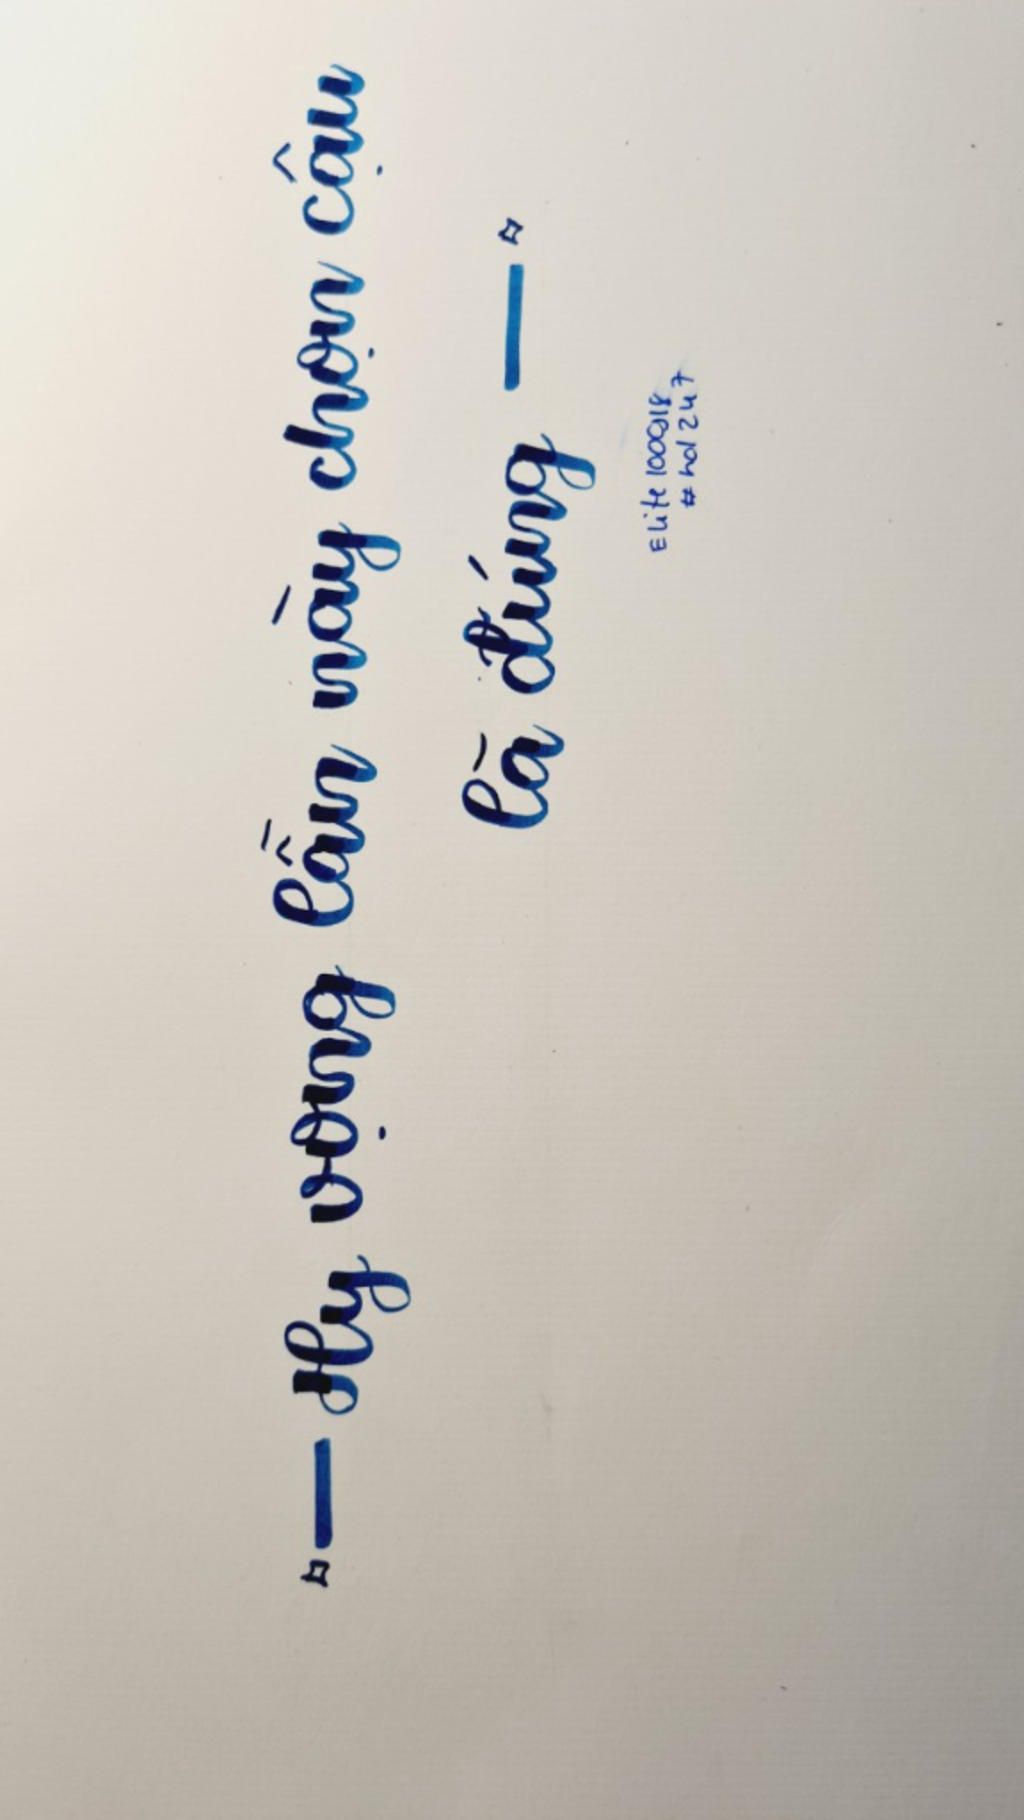 Hy vọng lần này chọn cậu
là đúng
Elite 1000918
# hol 247